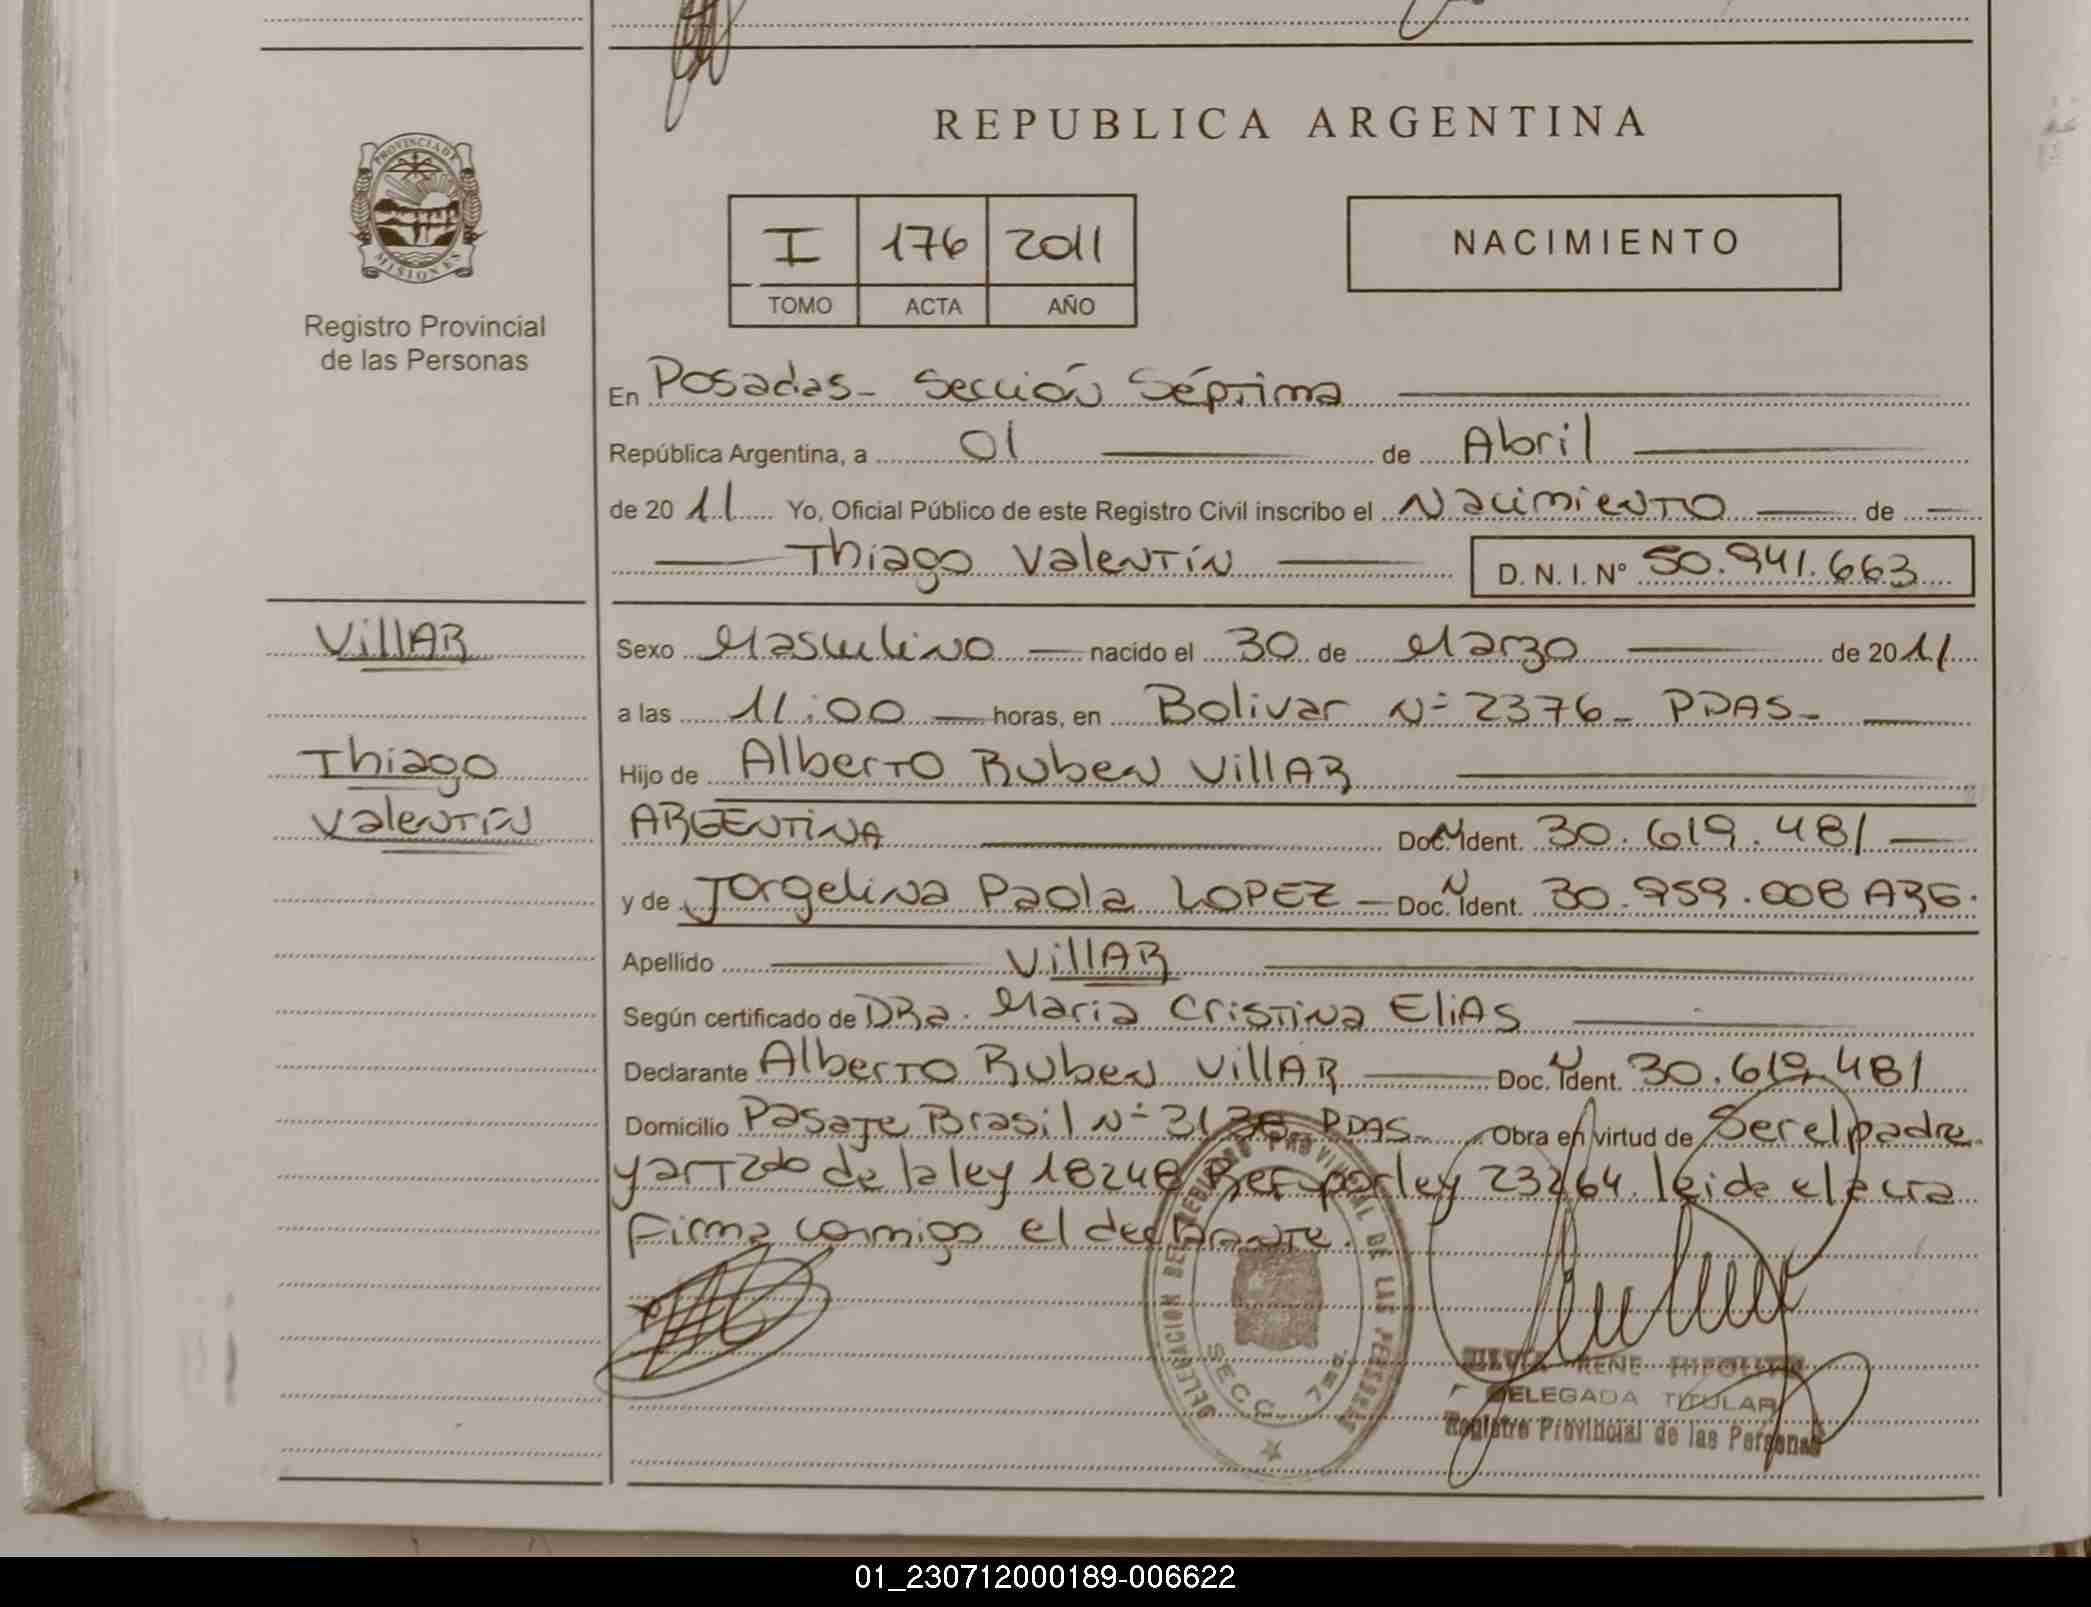 REPUBLICA ARGENTINA
PROVINCIA DE
MISIONES
Registro Provincial
de las Personas
I 176 2011
TOMO ACTA AÑO
NACIMIENTO
En Posadas - Sección Séptima
República Argentina, a 01 de Abril
de 2011 Yo, Oficial Público de este Registro Civil inscribo el Nacimiento de
Thiago Valentín D. N. I. Nº 50.941.663
VillAR
Thiago
Valentín
Sexo Masculino nacido el 30 de Marzo de 2011
a las 11:00 horas, en Bolivar Nº 2376 - PDAS -
Hijo de Alberto Ruben VillAR
ARGENTINA Doc. Ident. 30.619.481
y de Jorgelina Paola LOPEZ Doc. Ident. 30.959.008 ARG.
Apellido VillAR
Según certificado de DRa. Maria Cristina EliAS
Declarante Alberto Ruben VillAR Doc. Ident. 30.619.481
Domicilio Pasaje Brasil Nº PDAS Obra en virtud de Ser el padre
y art 2do de la ley 18248 Ref por ley 23264. leida el acta
firma conmigo el declarante.
DELEGACION DEL REGISTRO PROVINCIAL DE LAS PERSONAS
SECC. 7ma
RENE HIPOLITO
DELEGADA TITULAR
Registro Provincial de las Personas
01_230712000189-006622